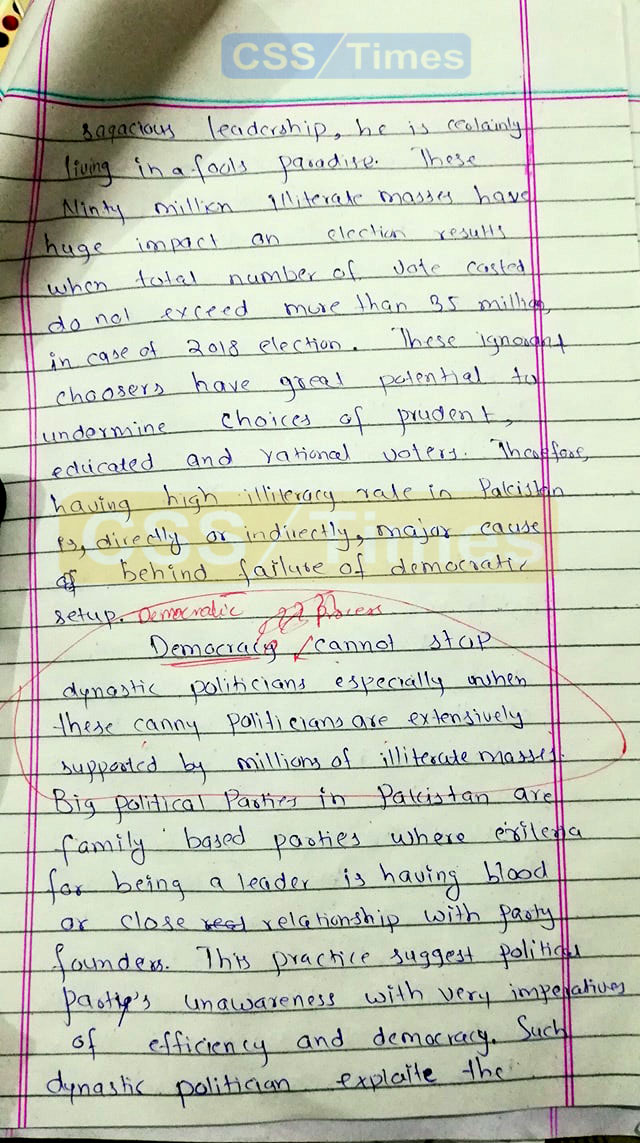 CSS/Times
sagacious leadership, he is certainly
living in a fools paradise. These
Ninty million illiterate masses have
huge impact on election results
when total number of vote casted
do not exceed more than 35 million
in case of 2018 election. These ignorant
choosers have great potential to
undermine choices of prudent,
educated and rational voters. Therefore,
having high illiteracy rate in Pakistan
CSS/Times
is, directly or indirectly, major cause
behind failure of democratic
setup. Democratic Process
Democracy cannot stop
dynastic politicians especially when
these canny politicians are extensively
supported by millions of illiterate masses.
Big political Parties in Pakistan are
family based parties where criteria
for being a leader is having blood
or close relationship with party
founders. This practice suggest political
party's unawareness with very imperatives
of efficiency and democracy. Such
dynastic politician explaite the